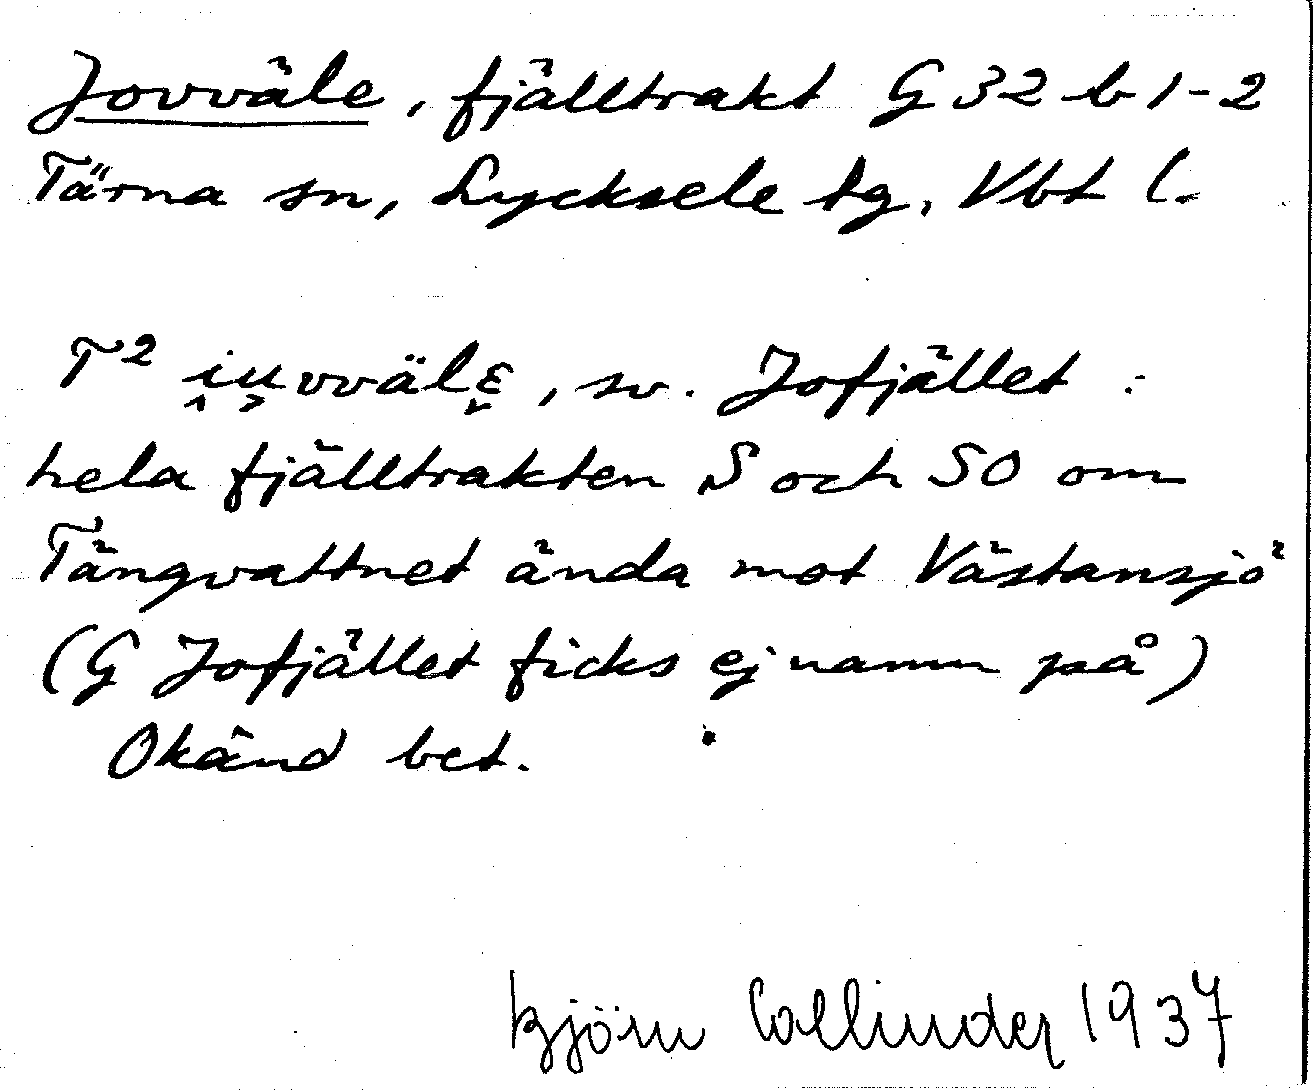 Jovväle, fjälltrakt G 32 b 1-2
Tärna sn, Lycksele tg, Vbt l.
T² i̭u̬vvälɛ̬, sv. Jofjället :
hela fjälltrakten S och SO om
Tängvattnet ända mot Västansjö
(G Jofjället ficks ej namn på)
Okänd bet.
Björn Collinder 1937